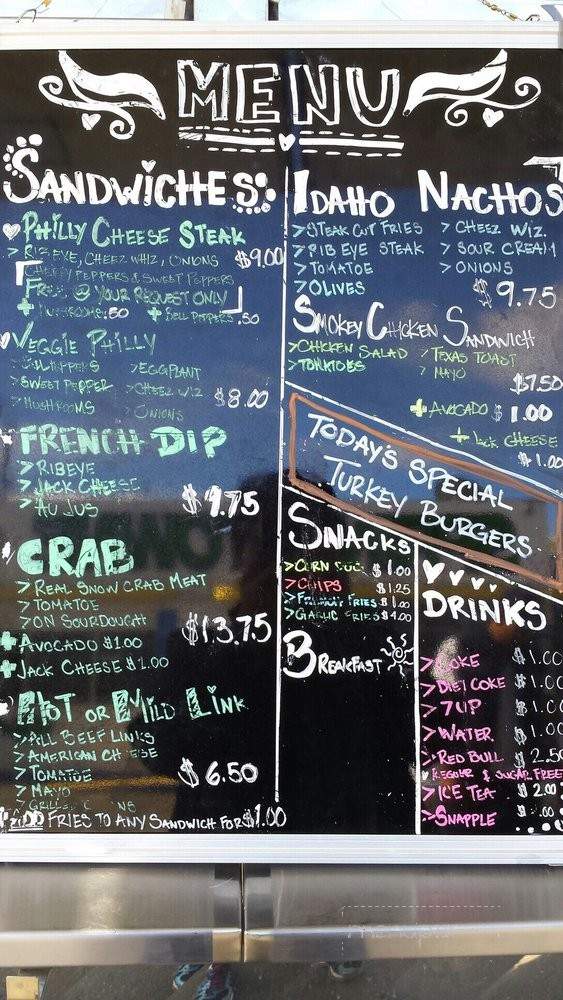 MENU
SANDWICHES
PHILLY CHEESE STEAK
> RIBEYE, CHEEZ WHIZ, ONIONS $9.00
PEPPERS & SWEET PEPPERS
FREE @ YOUR REQUEST ONLY
+ MUSHROOMS .50 + BELL PEPPERS .50
VEGGIE PHILLY
> EGGPLANT
> SWEET PEPPER > CHEEZ WIZ $8.00
> MUSHROOMS > ONIONS
FRENCH DIP
> RIBEYE
> JACK CHEESE
> AU JUS $9.75
CRAB
> REAL SNOW CRAB MEAT
> TOMATOE
> ON SOURDOUGH $13.75
+ AVOCADO $1.00
+ JACK CHEESE $1.00
HOT OR MILD LINK
> ALL BEEF LINKS
> AMERICAN CHEESE
> TOMATOE $6.50
> MAYO
ADD FRIES TO ANY SANDWICH FOR $1.00
IDAHO NACHOS
> STEAK CUT FRIES > CHEEZ WIZ.
> RIB EYE STEAK > SOUR CREAM
> TOMATOE > ONIONS
> OLIVES $9.75
SMOKEY CHICKEN SANDWICH
> CHICKEN SALAD > TEXAS TOAST
> TOMATOES > MAYO
$7.50
+ AVOCADO $1.00
+ JACK CHEESE
$1.00
TODAY'S SPECIAL
TURKEY BURGERS
SNACKS
> CORN $1.00
> CHIPS $1.25
> FRIES
> GARLIC FRIES $4.00
BREAKFAST
DRINKS
> COKE $1.00
> DIET COKE $1.00
> 7UP $1.00
> WATER $1.00
> RED BULL $2.50
REGULAR & SUGAR FREE
> ICE TEA $2.00
> SNAPPLE